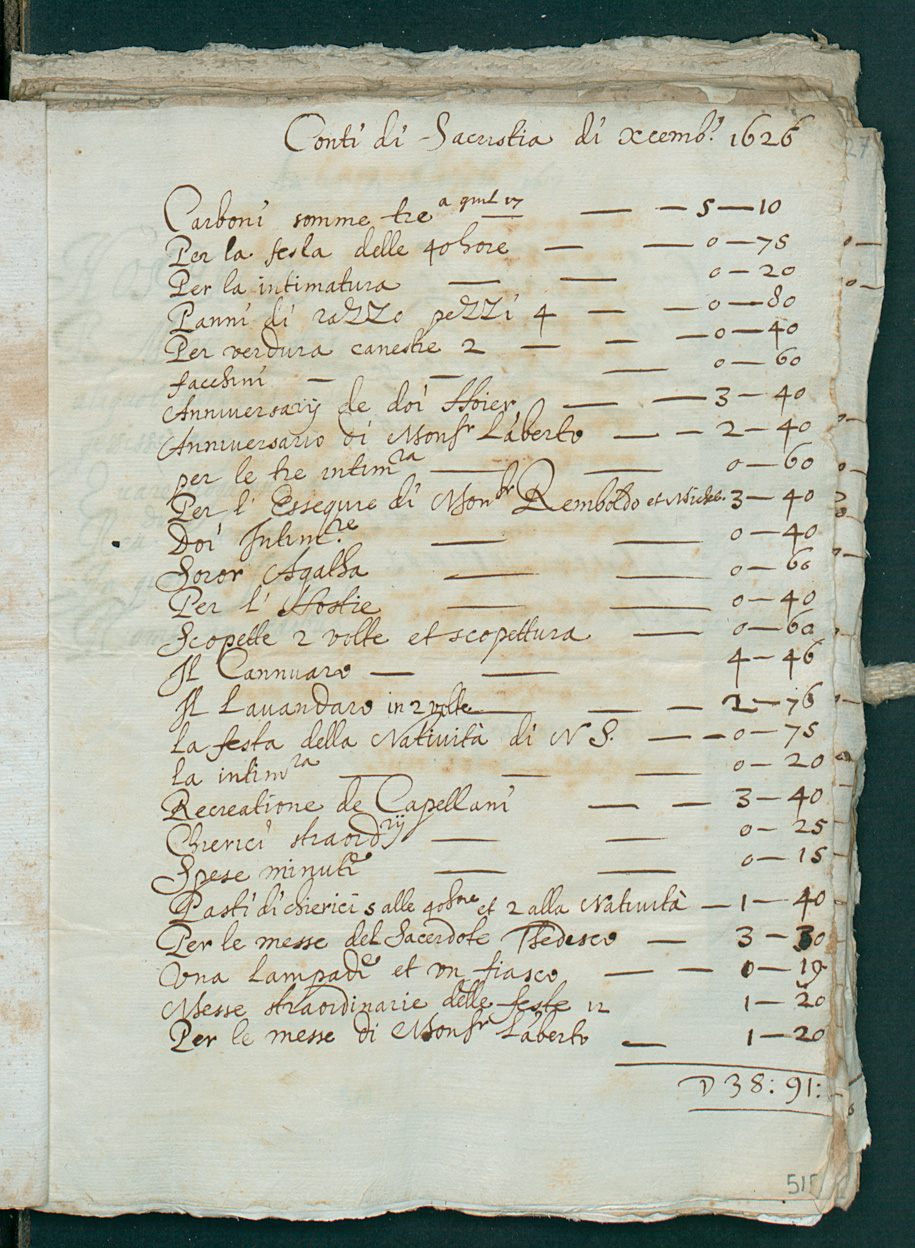 Conti di Sacristia di xcemb.ᵉ 1626
Carboni somme tre a 17 — — 5—10
Per la festa delle 40 hore — — 0—75
Per la intimatura — — 0—20
Panni di raZZo peZZi 4 — — 0—80
Per verdura canestre 2 — — — 0—40
facchini — — — 0—60
Anniuersarij de doi — — 3—40
Anniuersario di Monsʳ Laberto — — 2—40
per le tre intimʳᵃ — — 0—60
Per l' Essequie di Monsʳ Remboldo et 3—40
Doi Intimʳᵉ — — 0—40
Soror Agatha — — 0—60
Per l' Hostie — — 0—40
Scopette 2 volte et scopettura — 0—60
Il Cannuaro — — 4—46
Il Lauandaro in 2 volte — — — 2—76
La festa della Natiuità di N S. — — 0—75
La intimʳᵃ — — — 0—20
Recreatione de Capellani — — 3—40
Chierici straordʳⁱʲ — — 0—25
Spese minute — — 0—15
Pasti di chierici 5 alle 40 hʳᵉ et 2 alla Natiuità — 1—40
Per le messe del Sacerdote Thedesco — 3—30
Una Lampade et un fiasco — — 0—19
Messe straordinarie delle feste 12 1—20
Per le messe di Monsʳ Laberto — 1—20
38 : 91 :
27